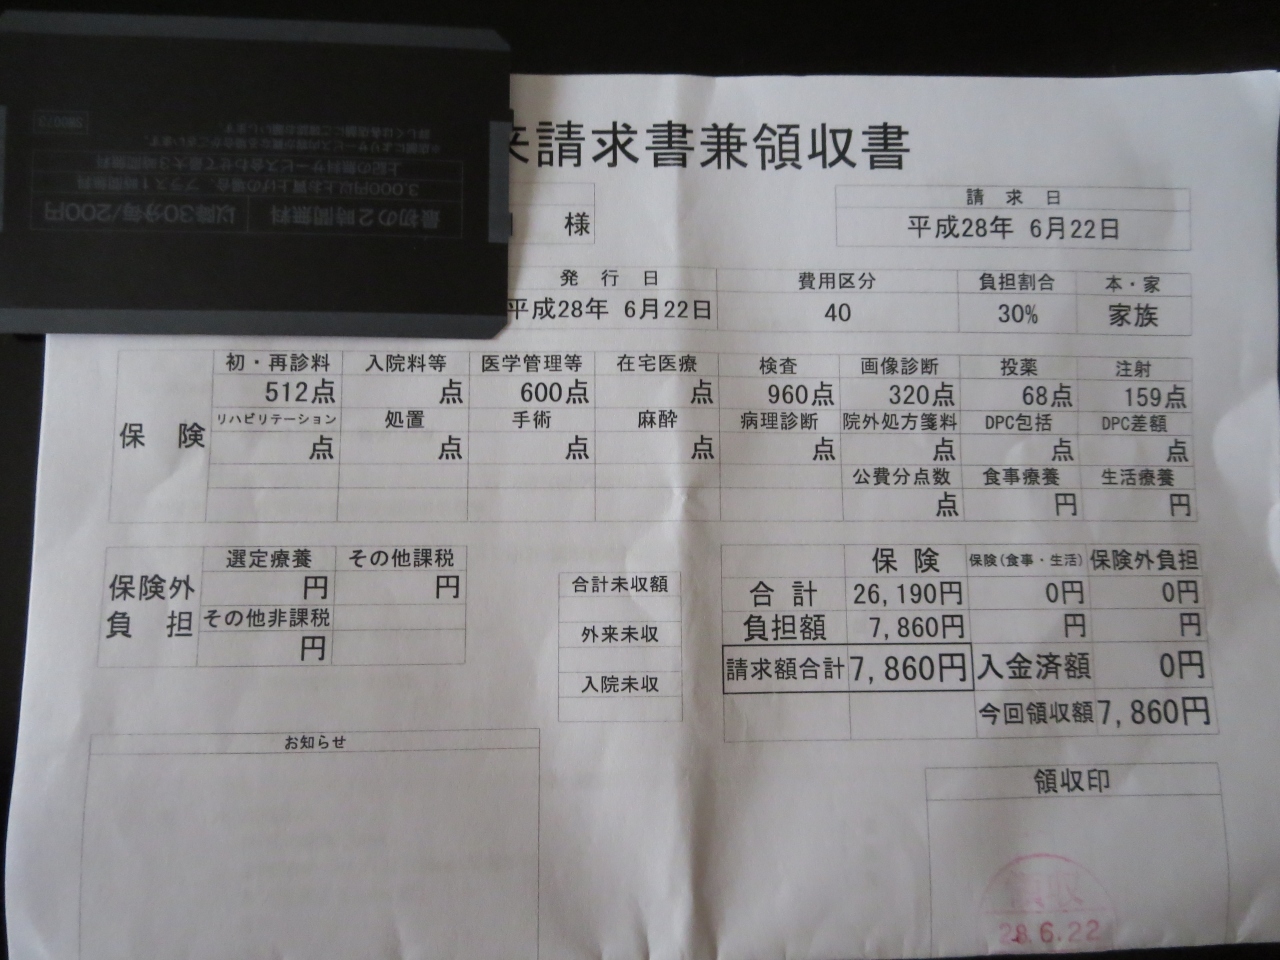 来請求書兼領収書
様
請 求 日
平成28年 6月22日
発 行 日 費用区分 負担割合 本・家
平成28年 6月22日 40 30% 家族
初・再診料 入院料等 医学管理等 在宅医療 検査 画像診断 投薬 注射
512点 点 600点 点 960点 320点 68点 159点
保 険
リハビリテーション 処置 手術 麻酔 病理診断 院外処方箋料 DPC包括 DPC差額
点 点 点 点 点 点 点 点
公費分点数 食事療養 生活療養
点 円 円
保険外負担
選定療養 その他課税
円 円
その他非課税
円
合計未収額
外来未収
入院未収
保 険 保険(食事・生活) 保険外負担
合 計 26,190円 0円 0円
負担額 7,860円 円 円
請求額合計 7,860円 入金済額 0円
今回領収額 7,860円
お知らせ
領収印
領収
28.6.22
最初の2時間無料 以降30分毎/200円
3,000円以上お買上げの場合 プラス1時間無料
上記の無料サービス合わせて最大3時間無料
※店舗によりサービス内容が異なる場合がございます。
詳しくは各店舗にご確認お願いします。